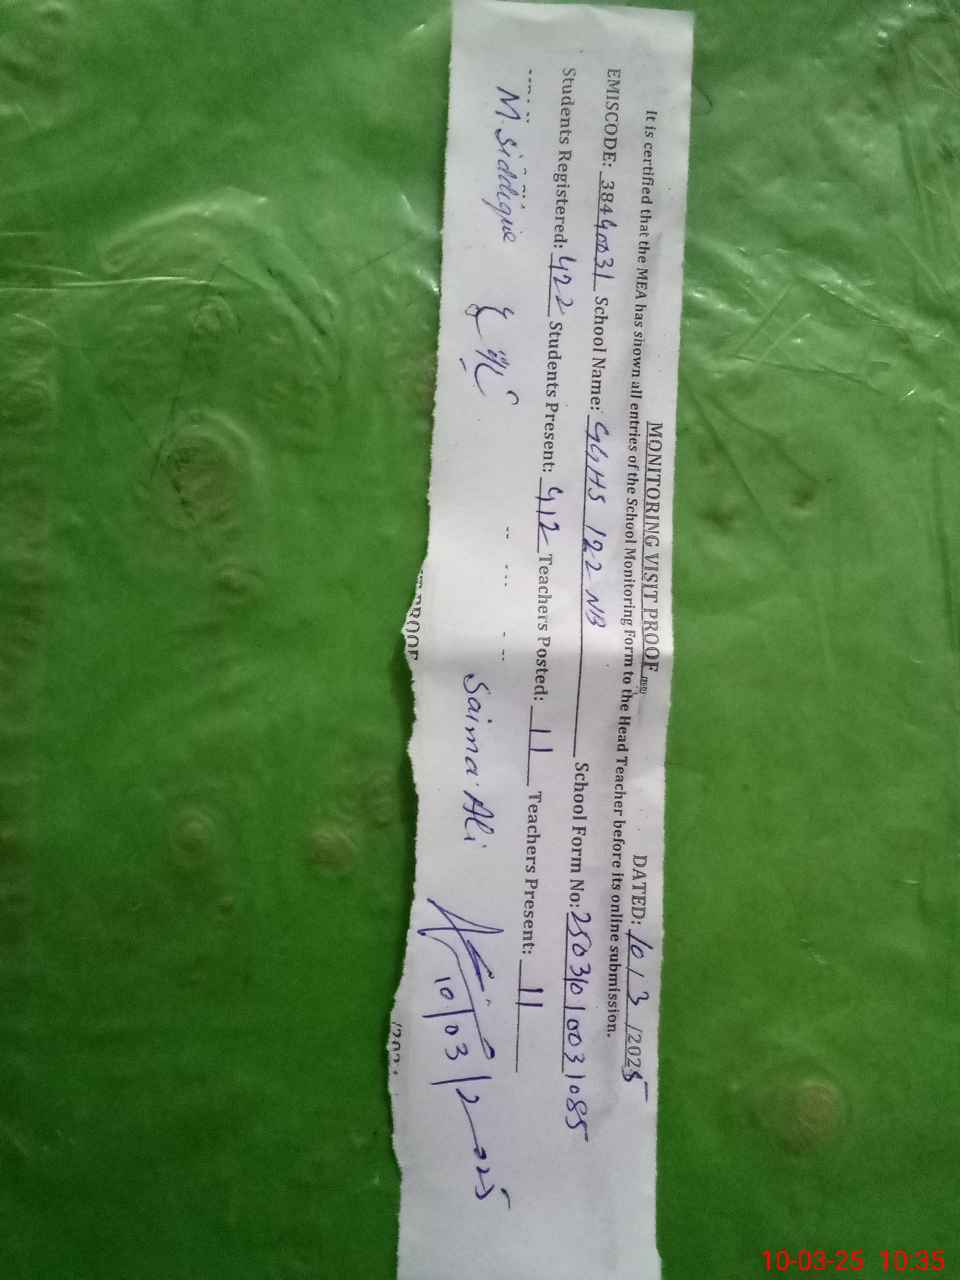 MONITORING VISIT PROOF DATED: 10/3/2025
It is certified that the MEA has shown all entries of the School Monitoring Form to the Head Teacher before its online submission.
EMISCODE: 38440031 School Name: GGHS 122 NB School Form No: 2503010031085
Students Registered: 422 Students Present: 412 Teachers Posted: 11 Teachers Present: 11
M. Siddique Saima Ali
10/03/2025
PROOF
/202
10-03-25 10:35